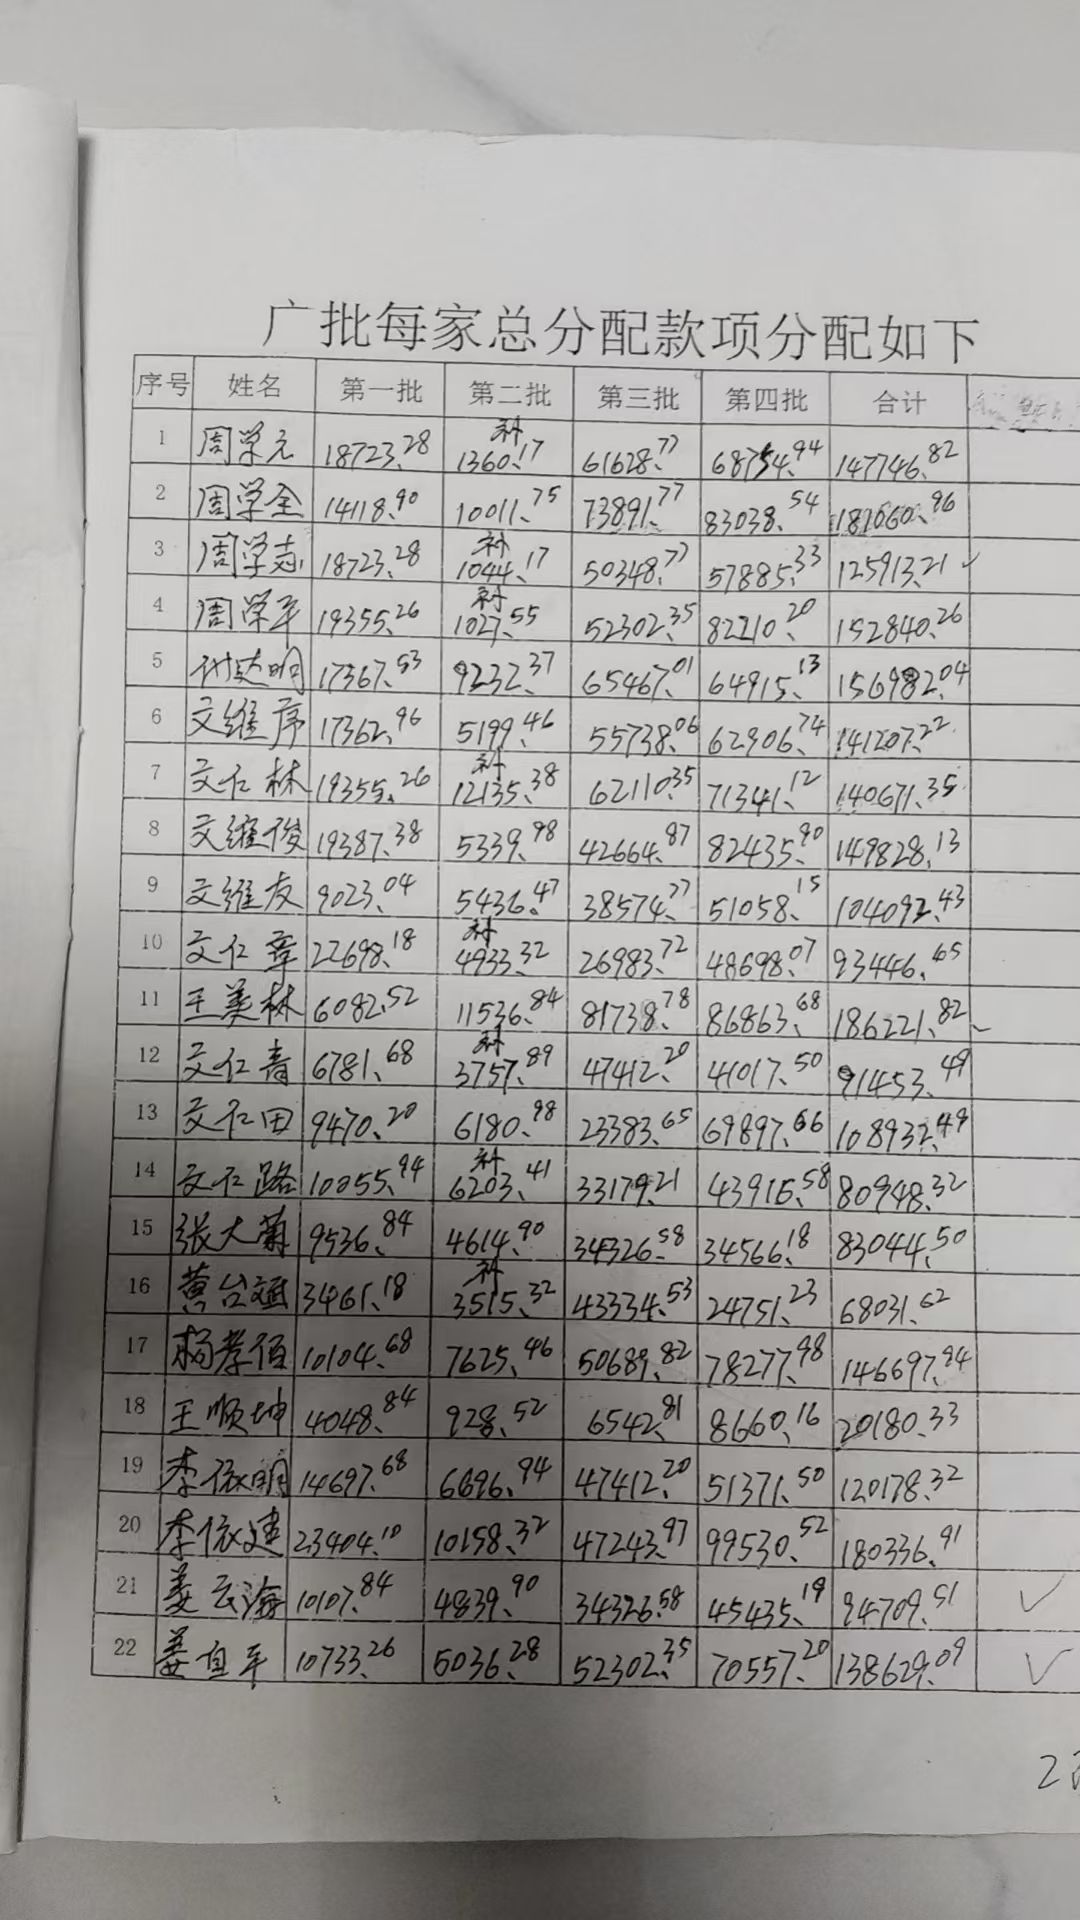 广批每家总分配款项分配如下
序号 姓名 第一批 第二批 第三批 第四批 合计
1 周学元 18723.28 补1360.17 61628.77 68754.94 147746.82
2 周学全 14118.90 10011.75 73891.77 83038.54 181060.96
3 周学志 18723.28 补1044.17 50348.77 57885.33 125913.21 ✓
4 周学平 19355.26 补1027.55 52302.35 82210.20 152840.26
5 17367.53 9232.37 65467.01 64915.13 156982.04
6 文维序 17362.96 5199.46 55738.06 62906.74 141207.22
7 文仁林 19355.26 补12135.38 62110.35 71341.12 140671.35
8 文维俊 19387.38 5339.98 42664.87 82435.90 149828.13
9 文维友 9023.04 5436.47 38574.77 51058.15 104092.43
10 文仁章 22698.18 补4933.32 26983.72 48698.07 93446.65
11 王美林 6082.52 11536.84 81738.78 86863.68 186221.82 ✓
12 文仁青 6781.68 补3757.89 47412.20 41017.50 91453.49
13 文仁田 9470.20 6180.98 23383.65 69897.66 108932.49
14 文仁路 10055.94 补6203.41 33179.21 43916.58 80948.32
15 张大菊 9536.84 4614.90 34326.58 34566.18 83044.50
16 黄台 3461.18 补3515.32 43334.53 24751.23 68031.62
17 杨孝伯 10104.68 7625.46 50689.82 78277.98 146697.94
18 王顺坤 4048.84 928.52 6542.81 8660.16 20180.33
19 李依明 14697.68 6696.94 47412.20 51371.50 120178.32
20 李依建 23404.10 10158.32 47243.97 99530.52 180336.91
21 姜云海 10107.84 4839.90 34326.58 45435.19 94709.51 ✓
22 姜自平 10733.26 5036.28 52302.35 70557.20 138629.09 ✓